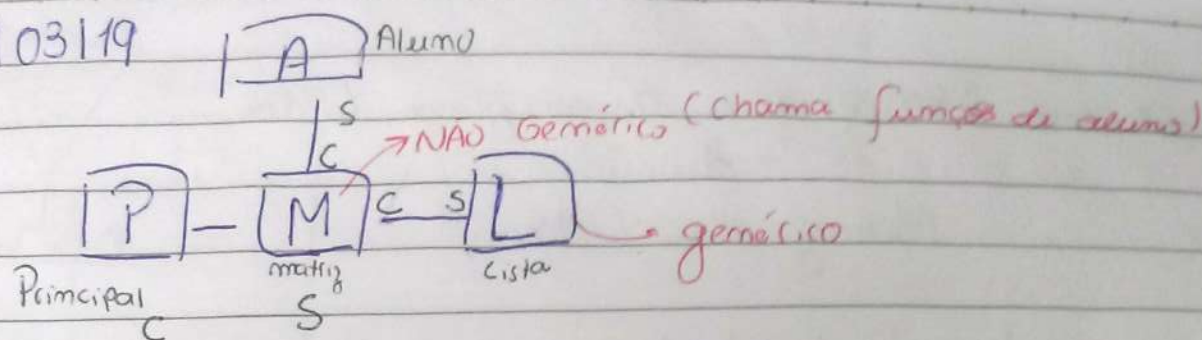 03/19
A Aluno
S
C
NÃO Genérico (Chama funções de aluno)
P M C S L
genérico
Principal matriz Lista
C S